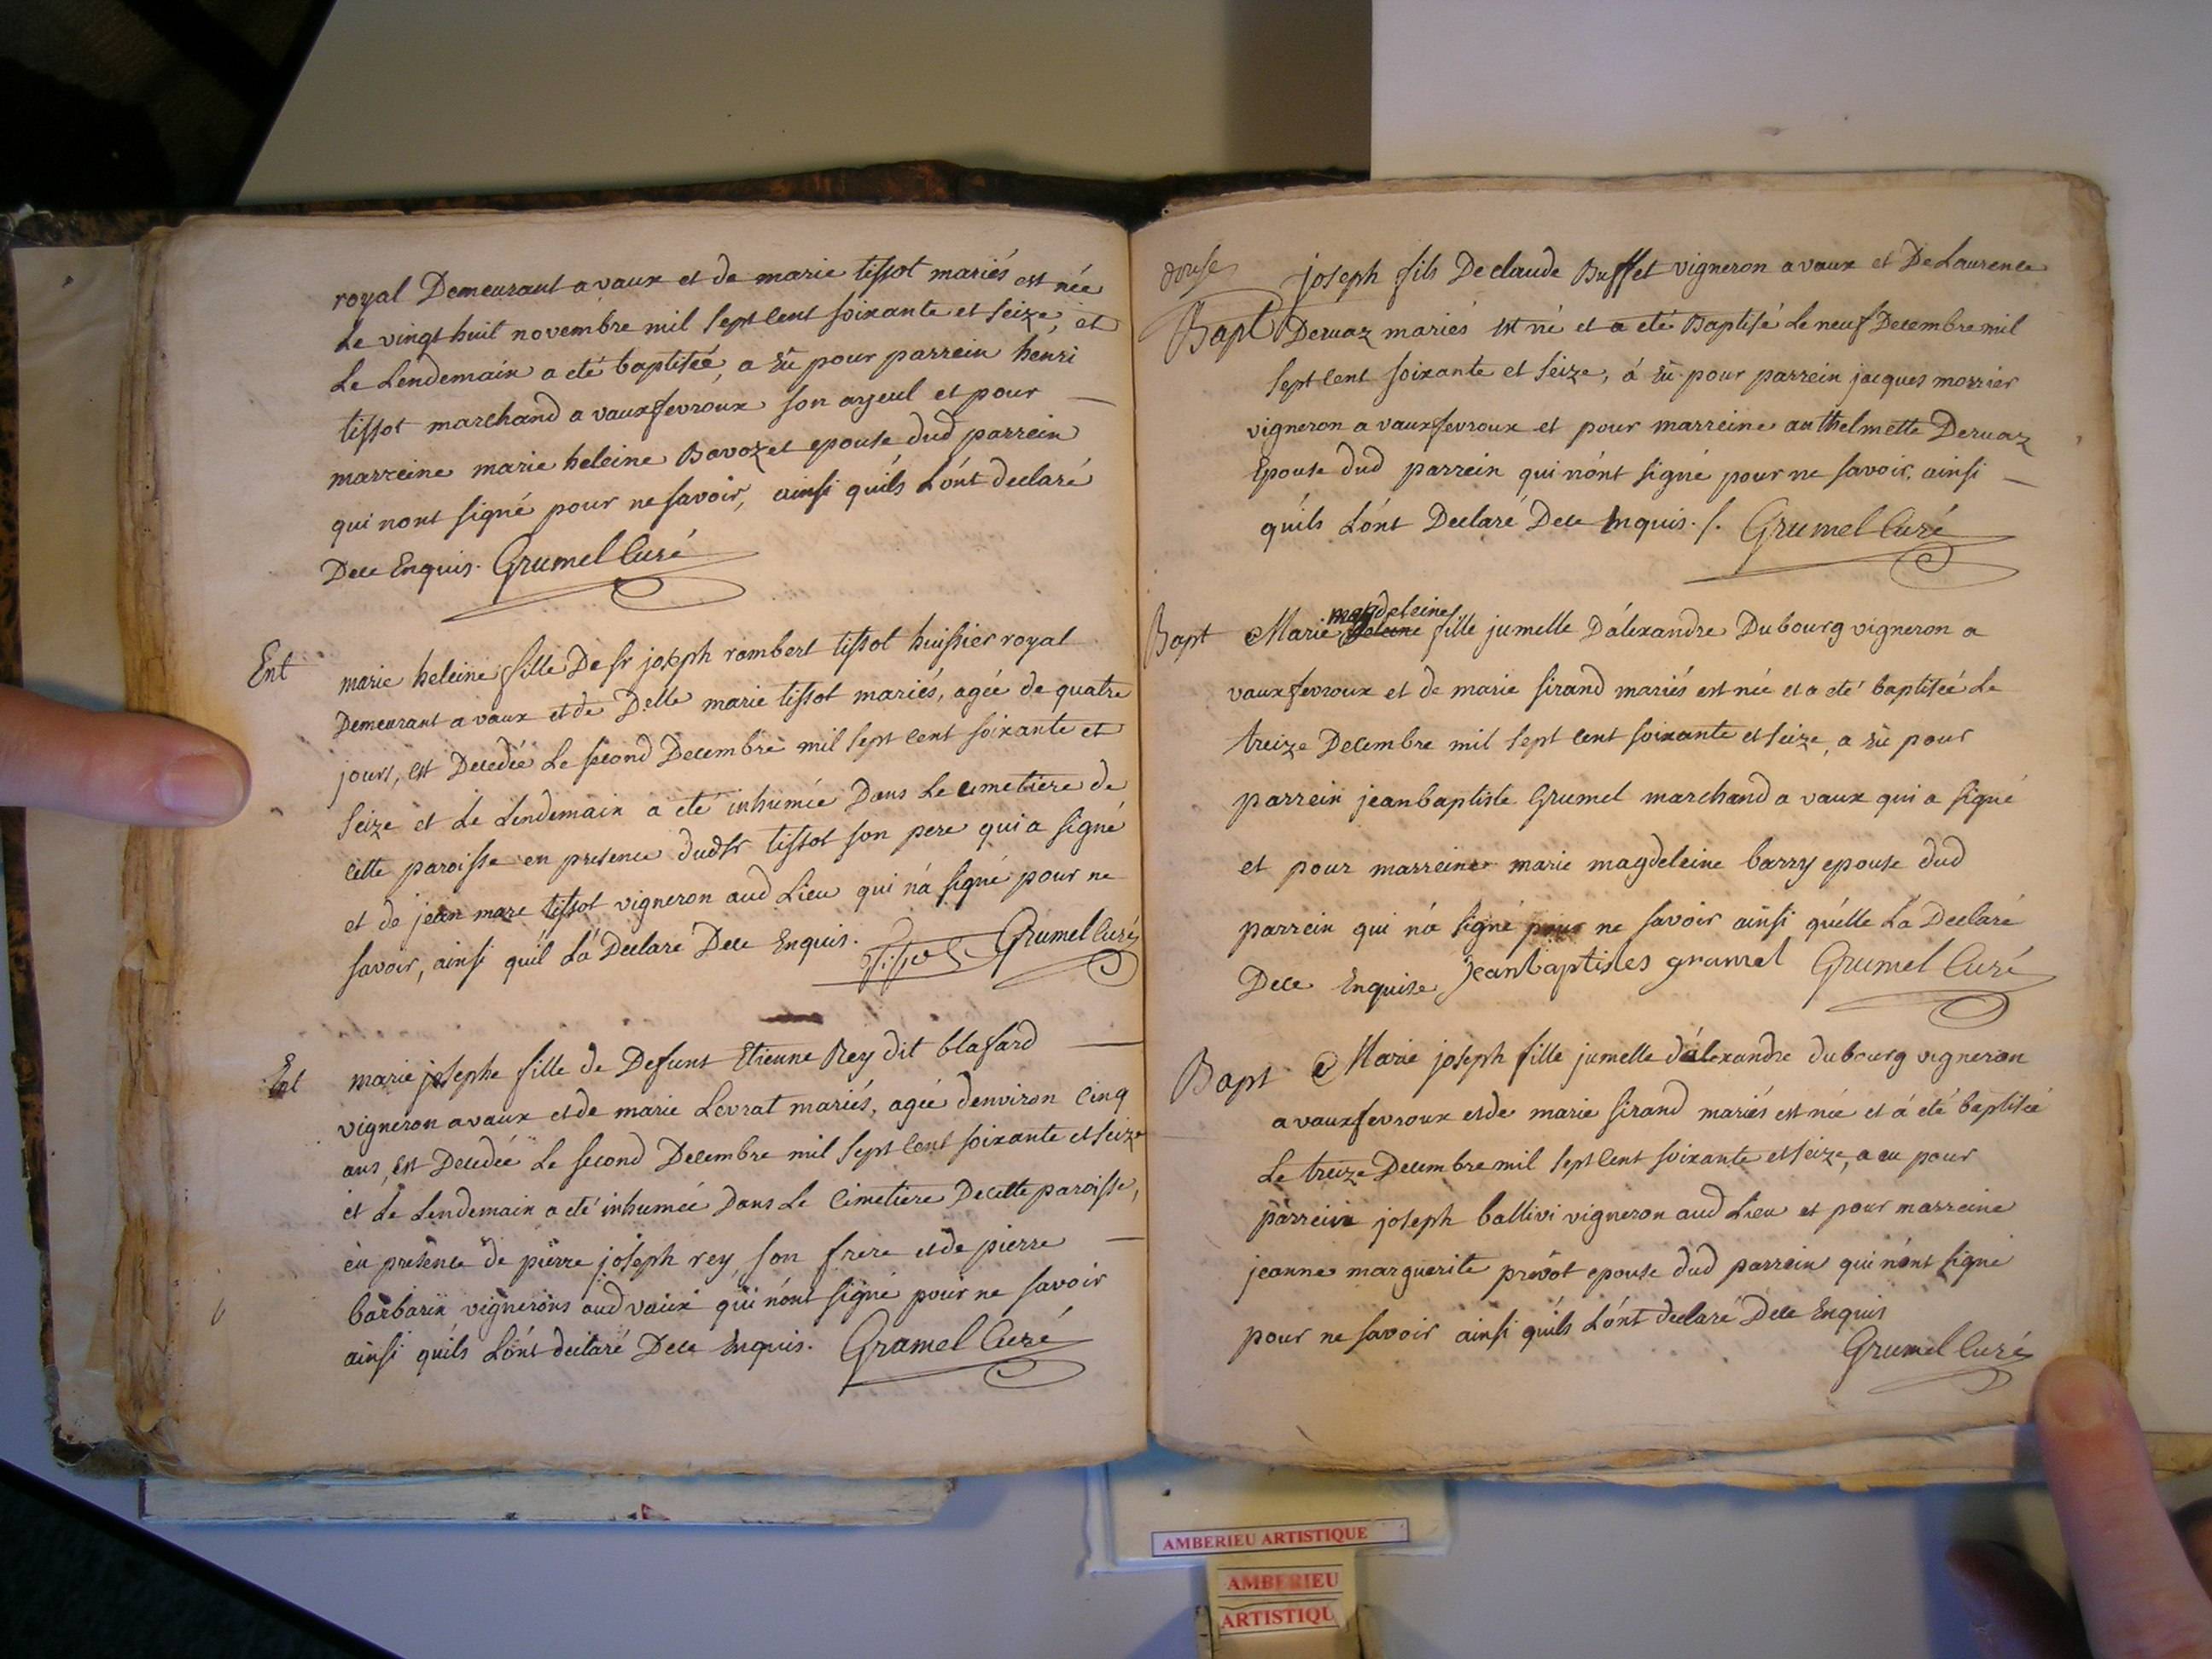 royal Demeurant a vaux et de marie tissot mariés est née
Le vingt huit novembre mil sept cent soixante et seize, et
Le Lendemain a eté baptiseé, a Eü pour parrein henri
tissot marchand a vauxfevroux son ayeul et pour —
marreine marie heleine Bavozet epouse dud parrein
qui nont signé pour ne savoir, ainsi quils L'ónt declaré
Dece Enquis. Grumel Curé
Ent marie heleine fille De sr joseph rambert tissot huissier royal
Demeurant a vaux et de Delle marie tissot mariés, ageé de quatre
jours, est Decedeé Le second Decembre mil sept cent soixante et
seize et Le Lendemain a eté inhumée Dans Le cimetiere de
cette paroisse en presence dud Sr tissot son pere qui a signé
et de jean marc tissot vigneron aud Lieu qui n'á signé pour ne
savoir, ainsi quil L'á Declare Dece Enquis. Tissot Grumel Curé
Ent marie josephe fille de Defunt Etienne Rey dit blafard —
vigneron a vaux et de marie Levrat mariés, ageé denviron cinq
ans, est Decedeé Le second Decembre mil sept cent soixante et seize
et Le Lendemain a eté inhumeé Dans Le Cimetiere De cette paroisse,
en presence de pierre joseph rey, son frere et de pierre —
barbarin vignerons aud vaux qui n'ónt signé pour ne savoir
ainsi quils L'ónt declaré Dece Enquis. Grumel Curé
douse
joseph fils De claude Buffet vigneron a vaux et De Laurence
Bapt Deruaz mariés est né et a eté Baptisé Le neuf Decembre mil
sept cent soixante et seize, á Eü pour parrein jacques morrier
vigneron a vauxfevroux et pour marreine anthelmette Deruaz
Epouse dud parrein qui n'ónt signé pour ne savoir, ainsi —
quils L'ónt Declaré Dece Enquis. /. Grumel Curé
magdeleine
Bapt Marie fille jumelle D'álexandre Dubourg vigneron a
vauxfevroux et de marie sirand mariés est née et a eté baptiseé Le
treize Decembre mil sept cent soixante et seize, a Eü pour
parrein jean baptiste Grumel marchand a vaux qui a signé
et pour marreine marie magdeleine barry epouse dud
parrein qui n'á signé pour ne savoir ainsi quélle L'á Declaré
Dece Enquise Jeanbaptistes grumel Grumel Curé
Bapt Marie joseph fille jumelle d'álexandre dubourg vigneron
a vauxfevroux et de marie sirand mariés est née et á eté baptiseé
Le treize Decembre mil sept cent soixante et seize, a eu pour
parrein joseph ballivi vigneron aud Lieu et pour marreine
jeanne marguerite prevôt epouse dud parrein qui n'ónt signé
pour ne savoir ainsi quils L'ónt declaré Dece Enquis
Grumel Curé
AMBERIEU ARTISTIQUE
AMBERIEU
ARTISTIQU